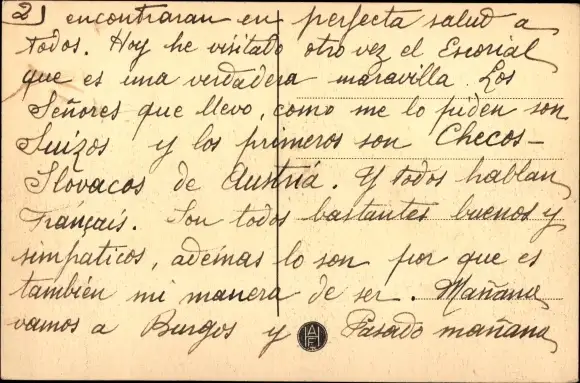 2) encontraran en perfecta salud a
todos. Hoy he visitado otro vez el Escorial
que es una verdadera maravilla. Los
Señores que llevo, como me lo piden son
Suizos y los primeros son Checos-
Slovacos de Austriá. Y todos hablan
Français. Son todos bastantes buenos y
simpaticos, ademas lo son por que es
también mi manera de ser. Mañana
vamos a Burgos y Pasado mañana